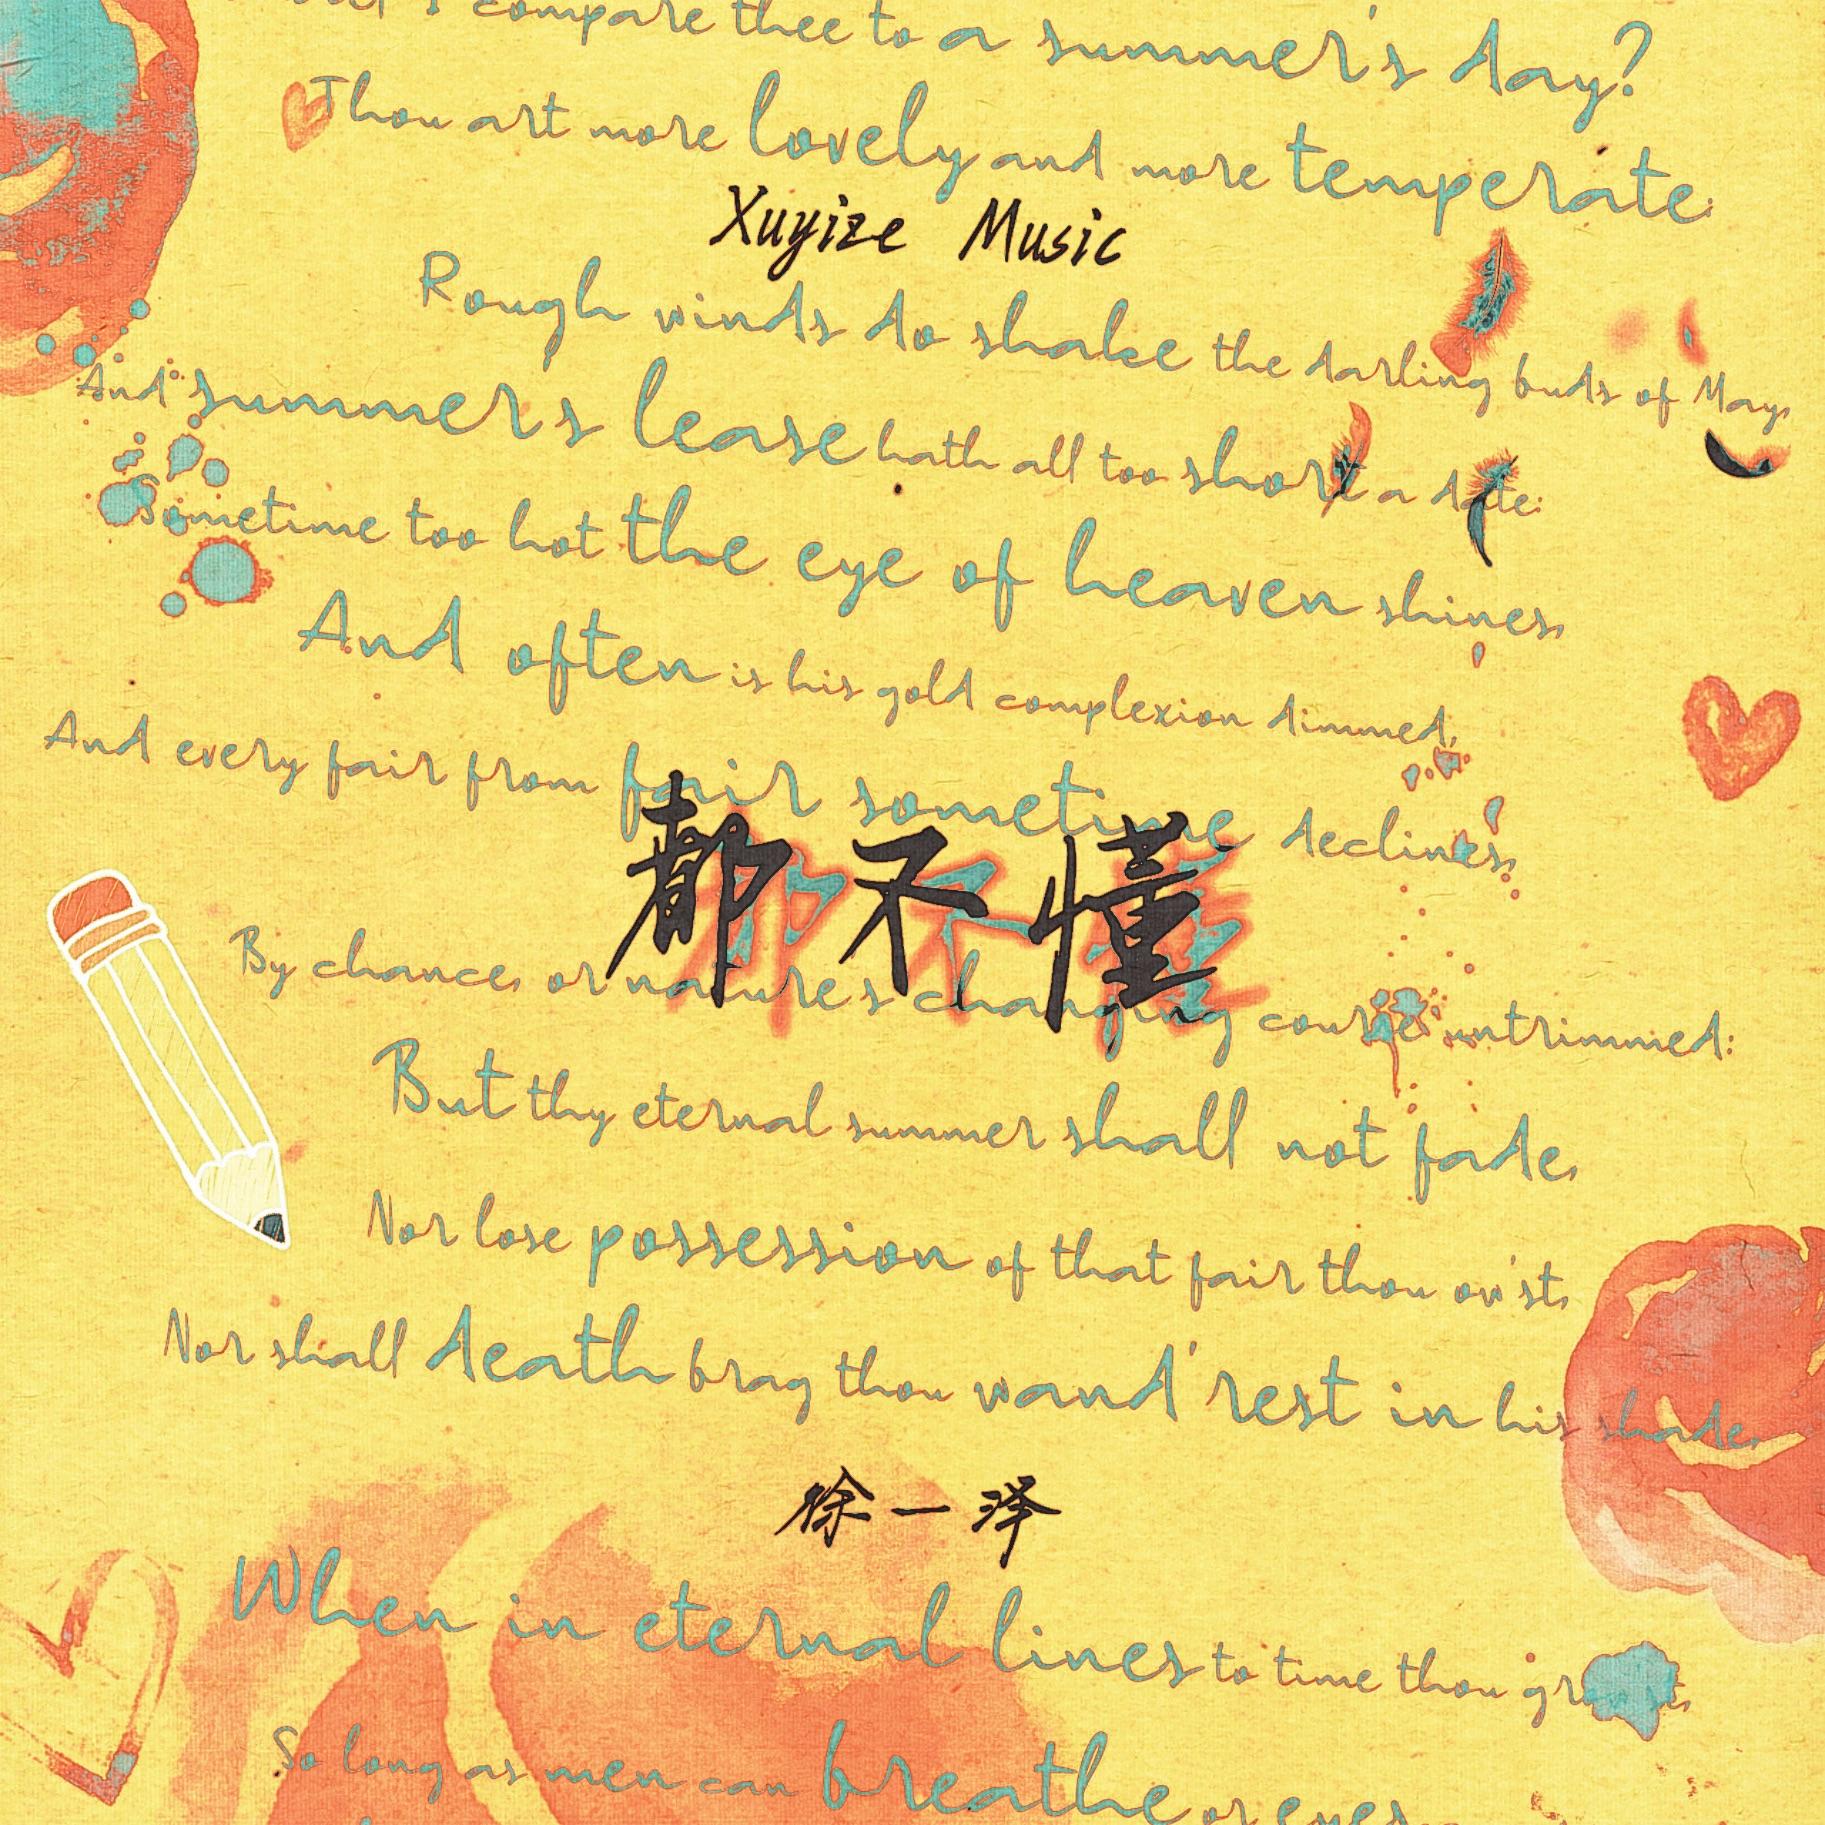 compare thee to a summer's day?
Thou art more lovely and more temperate:
Xuyize Music
Rough winds do shake the darling buds of May,
And summer's lease hath all too short a date:
Sometime too hot the eye of heaven shines,
And often is his gold complexion dimmed,
And every fair from fair sometime declines,
都不懂
By chance, or nature's changing course untrimmed:
But thy eternal summer shall not fade,
Nor lose possession of that fair thou ow'st,
Nor shall death brag thou wand'rest in his shade,
徐一泽
When in eternal lines to time thou
So long as men can breathe or eyes